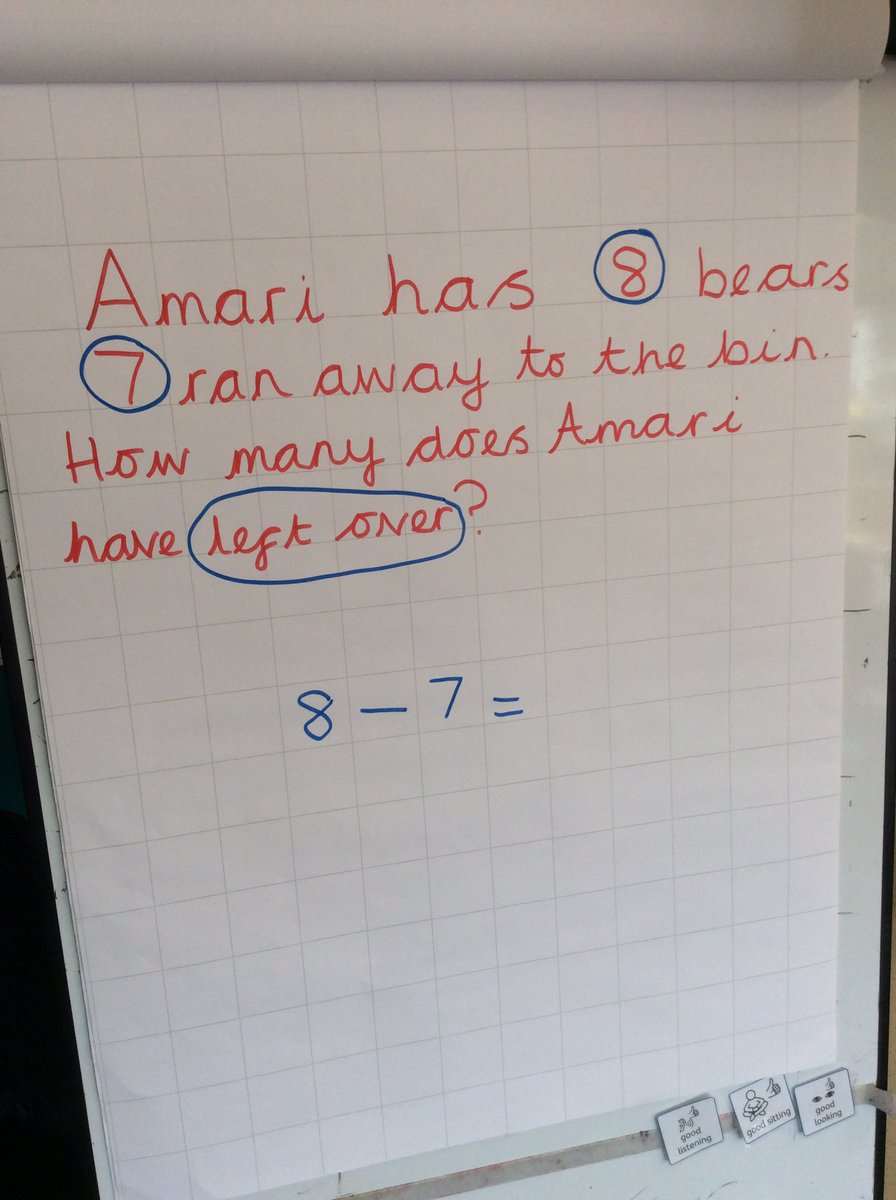 Amari has 8 bears
7 ran away to the bin.
How many does Amari
have left over?
8 - 7 =
good
listening
good sitting
good
looking